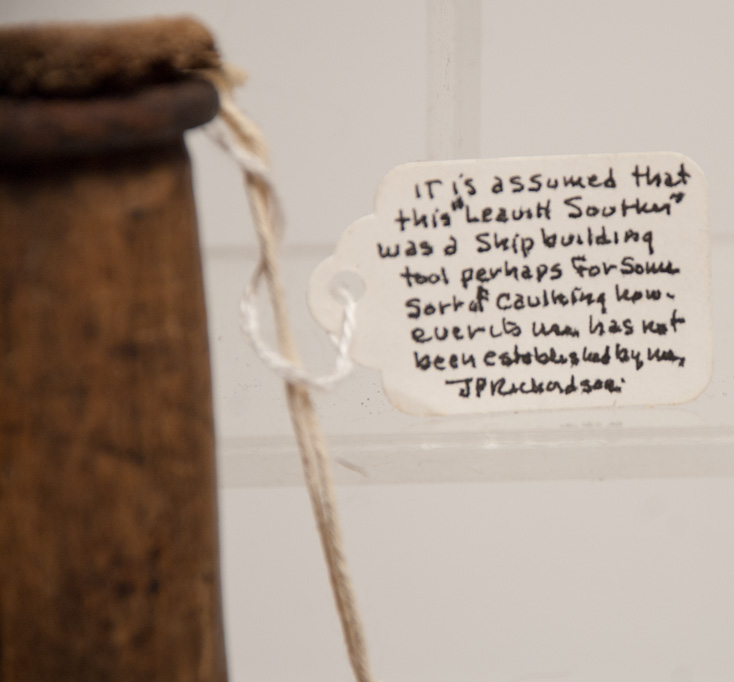 it is assumed that
this "Leavitt Souther"
was a Ship building
tool perhaps for Some
Sort of Caulking how-
ever its use has not
been established by me,
JP Richardson.